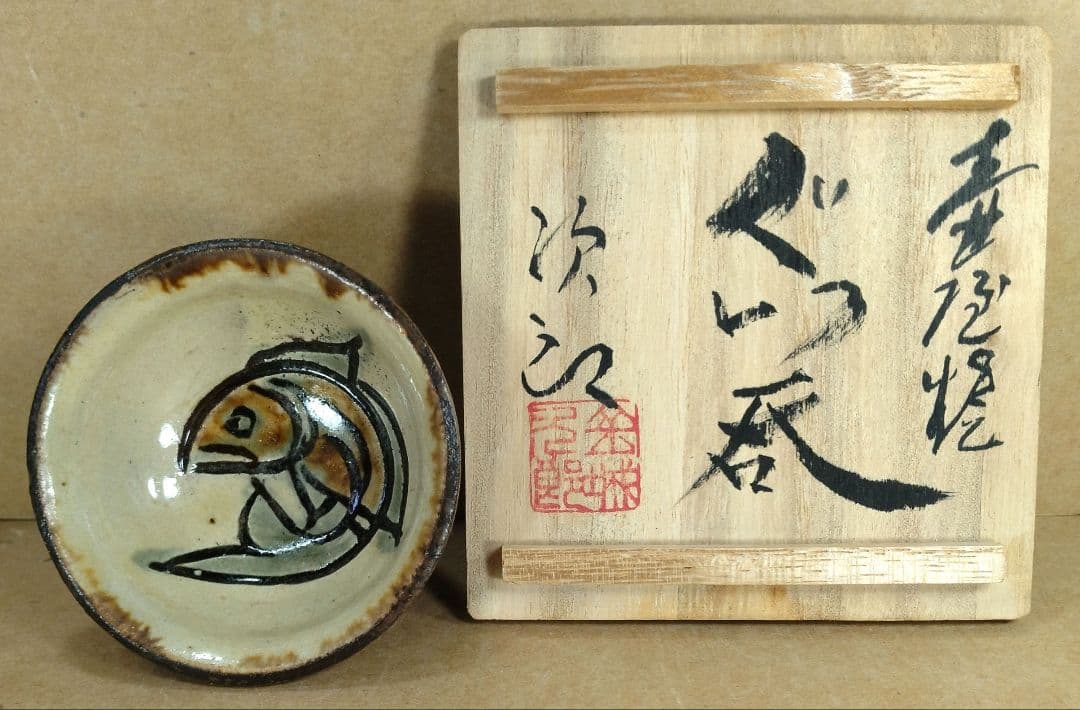 壷屋焼
ぐい呑
次郎